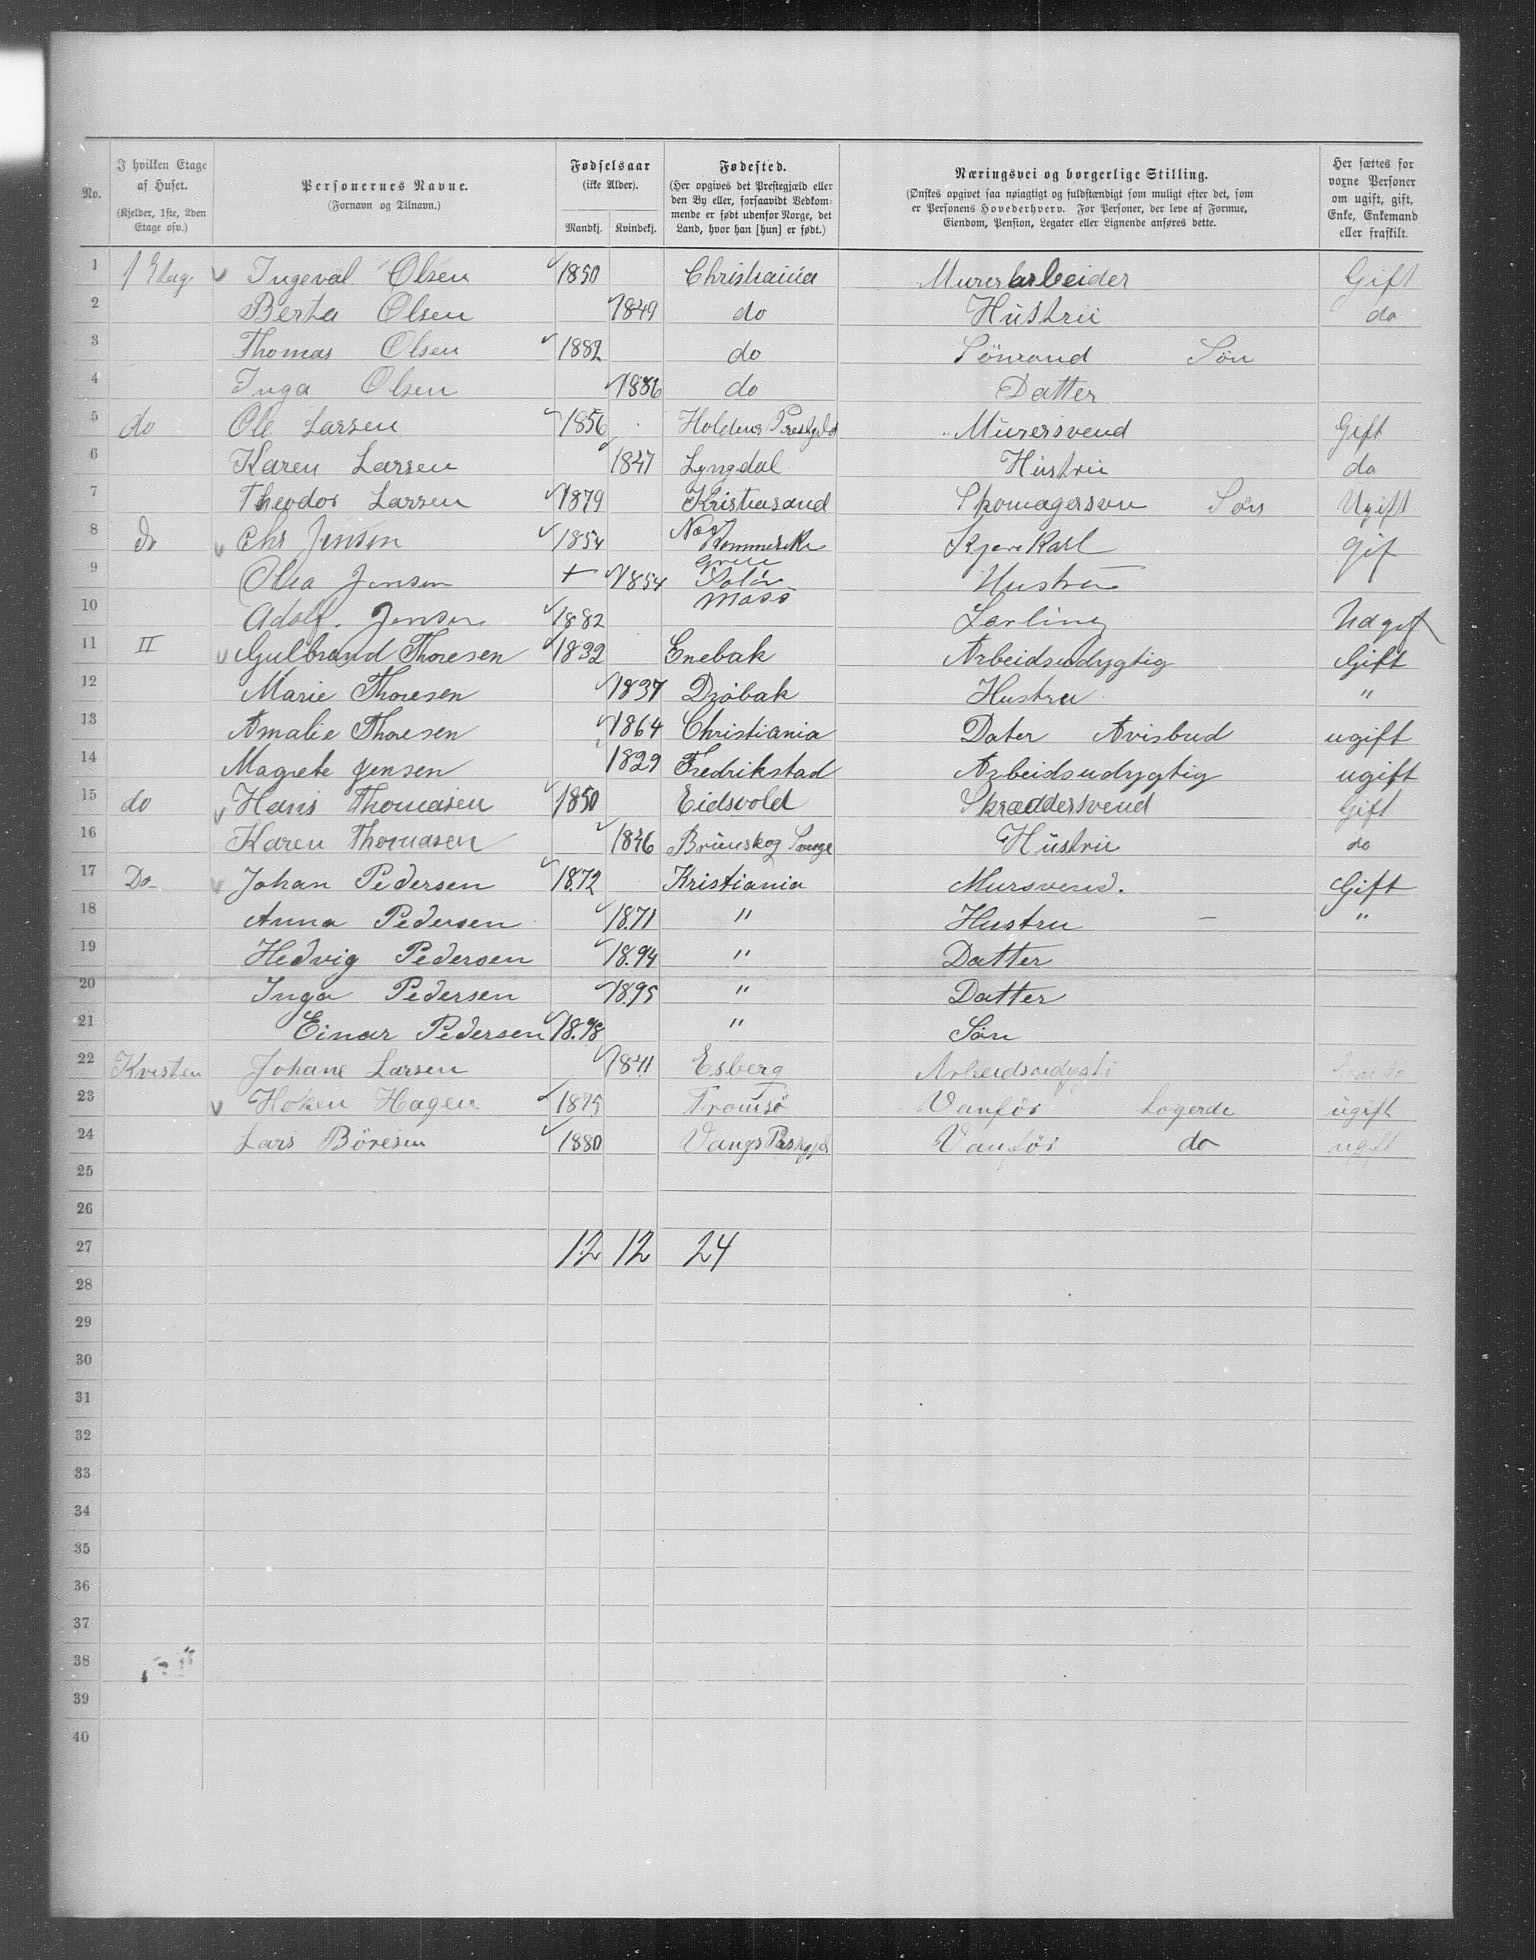 No. I hvilken Etage af Huset. (Kjelder, 1ste, 2den Etage osv.) Personernes Navne. (Fornavn og Tilnavn.) Fødselsaar (ikke Alder). Mandkj. Kvindekj. Fødested. (Her opgives det Prestegjæld eller den By eller, forsaavidt Vedkommende er født udenfor Norge, det Land, hvor han [hun] er født.) Næringsvei og borgerlige Stilling. (Ønskes opgivet saa nøiagtigt og fuldstændigt som muligt efter det, som er Personens Hovederhverv. For Personer, der leve af Formue, Eiendom, Pension, Legater eller Lignende anføres dette. Her sættes for voxne Personer om ugift, gift, Enke, Enkemand eller fraskilt.
1 1 Etag. Ingeval Olsen 1850 Christiania Murerarbeider Gift
2 Berta Olsen 1849 do Hustru do
3 Thomas Olsen 1882 do Søn
4 Inga Olsen 1886 do Datter
5 do Ole Larsen 1856 Holdens Murersvend Gift
6 Karen Larsen 1847 Lyngdal Hustru do
7 Theodor Larsen 1879 Kristiasand Skomagersven Søn Ugift
8 do Chr Jensen 1854 Kjørekarl Gif
9 Jensen + 1854 Soløir Hustru
10 Adolf. Jensen 1882 Moss Lærling
11 II Gulbrand Thoresen 1832 Enebak Arbeidsudygtig Gift
12 Marie Thoresen 1837 Drøbak Hustru "
13 Amalie Thoresen 1864 Christiania Dater Avisbud ugift
14 Magrete Jensen 1829 Fredrikstad Arbeidsudygtig ugift
15 do Hans Thomasen 1850 Eidsvold Skræddersvend Gift
16 Karen Thomasen 1846 Brunskog Hustru do
17 Do Johan Pedersen 1872 Kristiania Mursvend. Gift
18 Anna Pedersen 1871 " Hustru "
19 Hedvig Pedersen 1894 " Datter
20 Inga Pedersen 1895 " Datter
21 Einar Pedersen 1898 " Søn
22 Kvisten Johane Larsen 1841 Esberg
23 Hoken Hagen 1875 Tromsø Vanför Logerde ugift
24 Lars Böresen 1880 Vangs Vanför do ugift
25
26
27 12 12 24
28
29
30
31
32
33
34
35
36
37
38
39
40